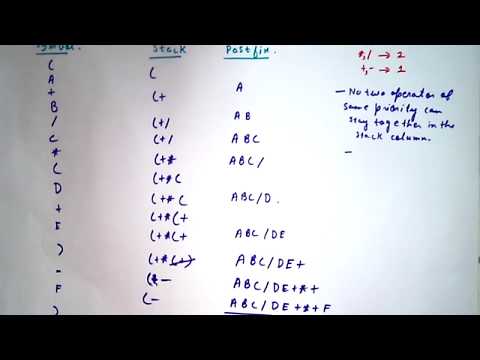 Symbol. Stack Postfix.
( (
A A
+ (+
B AB
/ (+/
C ABC
* (+* ABC/
( (+*(
D (+*( ABC/D.
+ (+*(+
E (+*(+ ABC/DE
) (+*(+) ABC/DE+
- (*- ABC/DE+*+
F (- ABC/DE+*+F
)
*,/ → 2
+,- → 1
- No two operator of
same priority can
stay together in the
stack column.
-